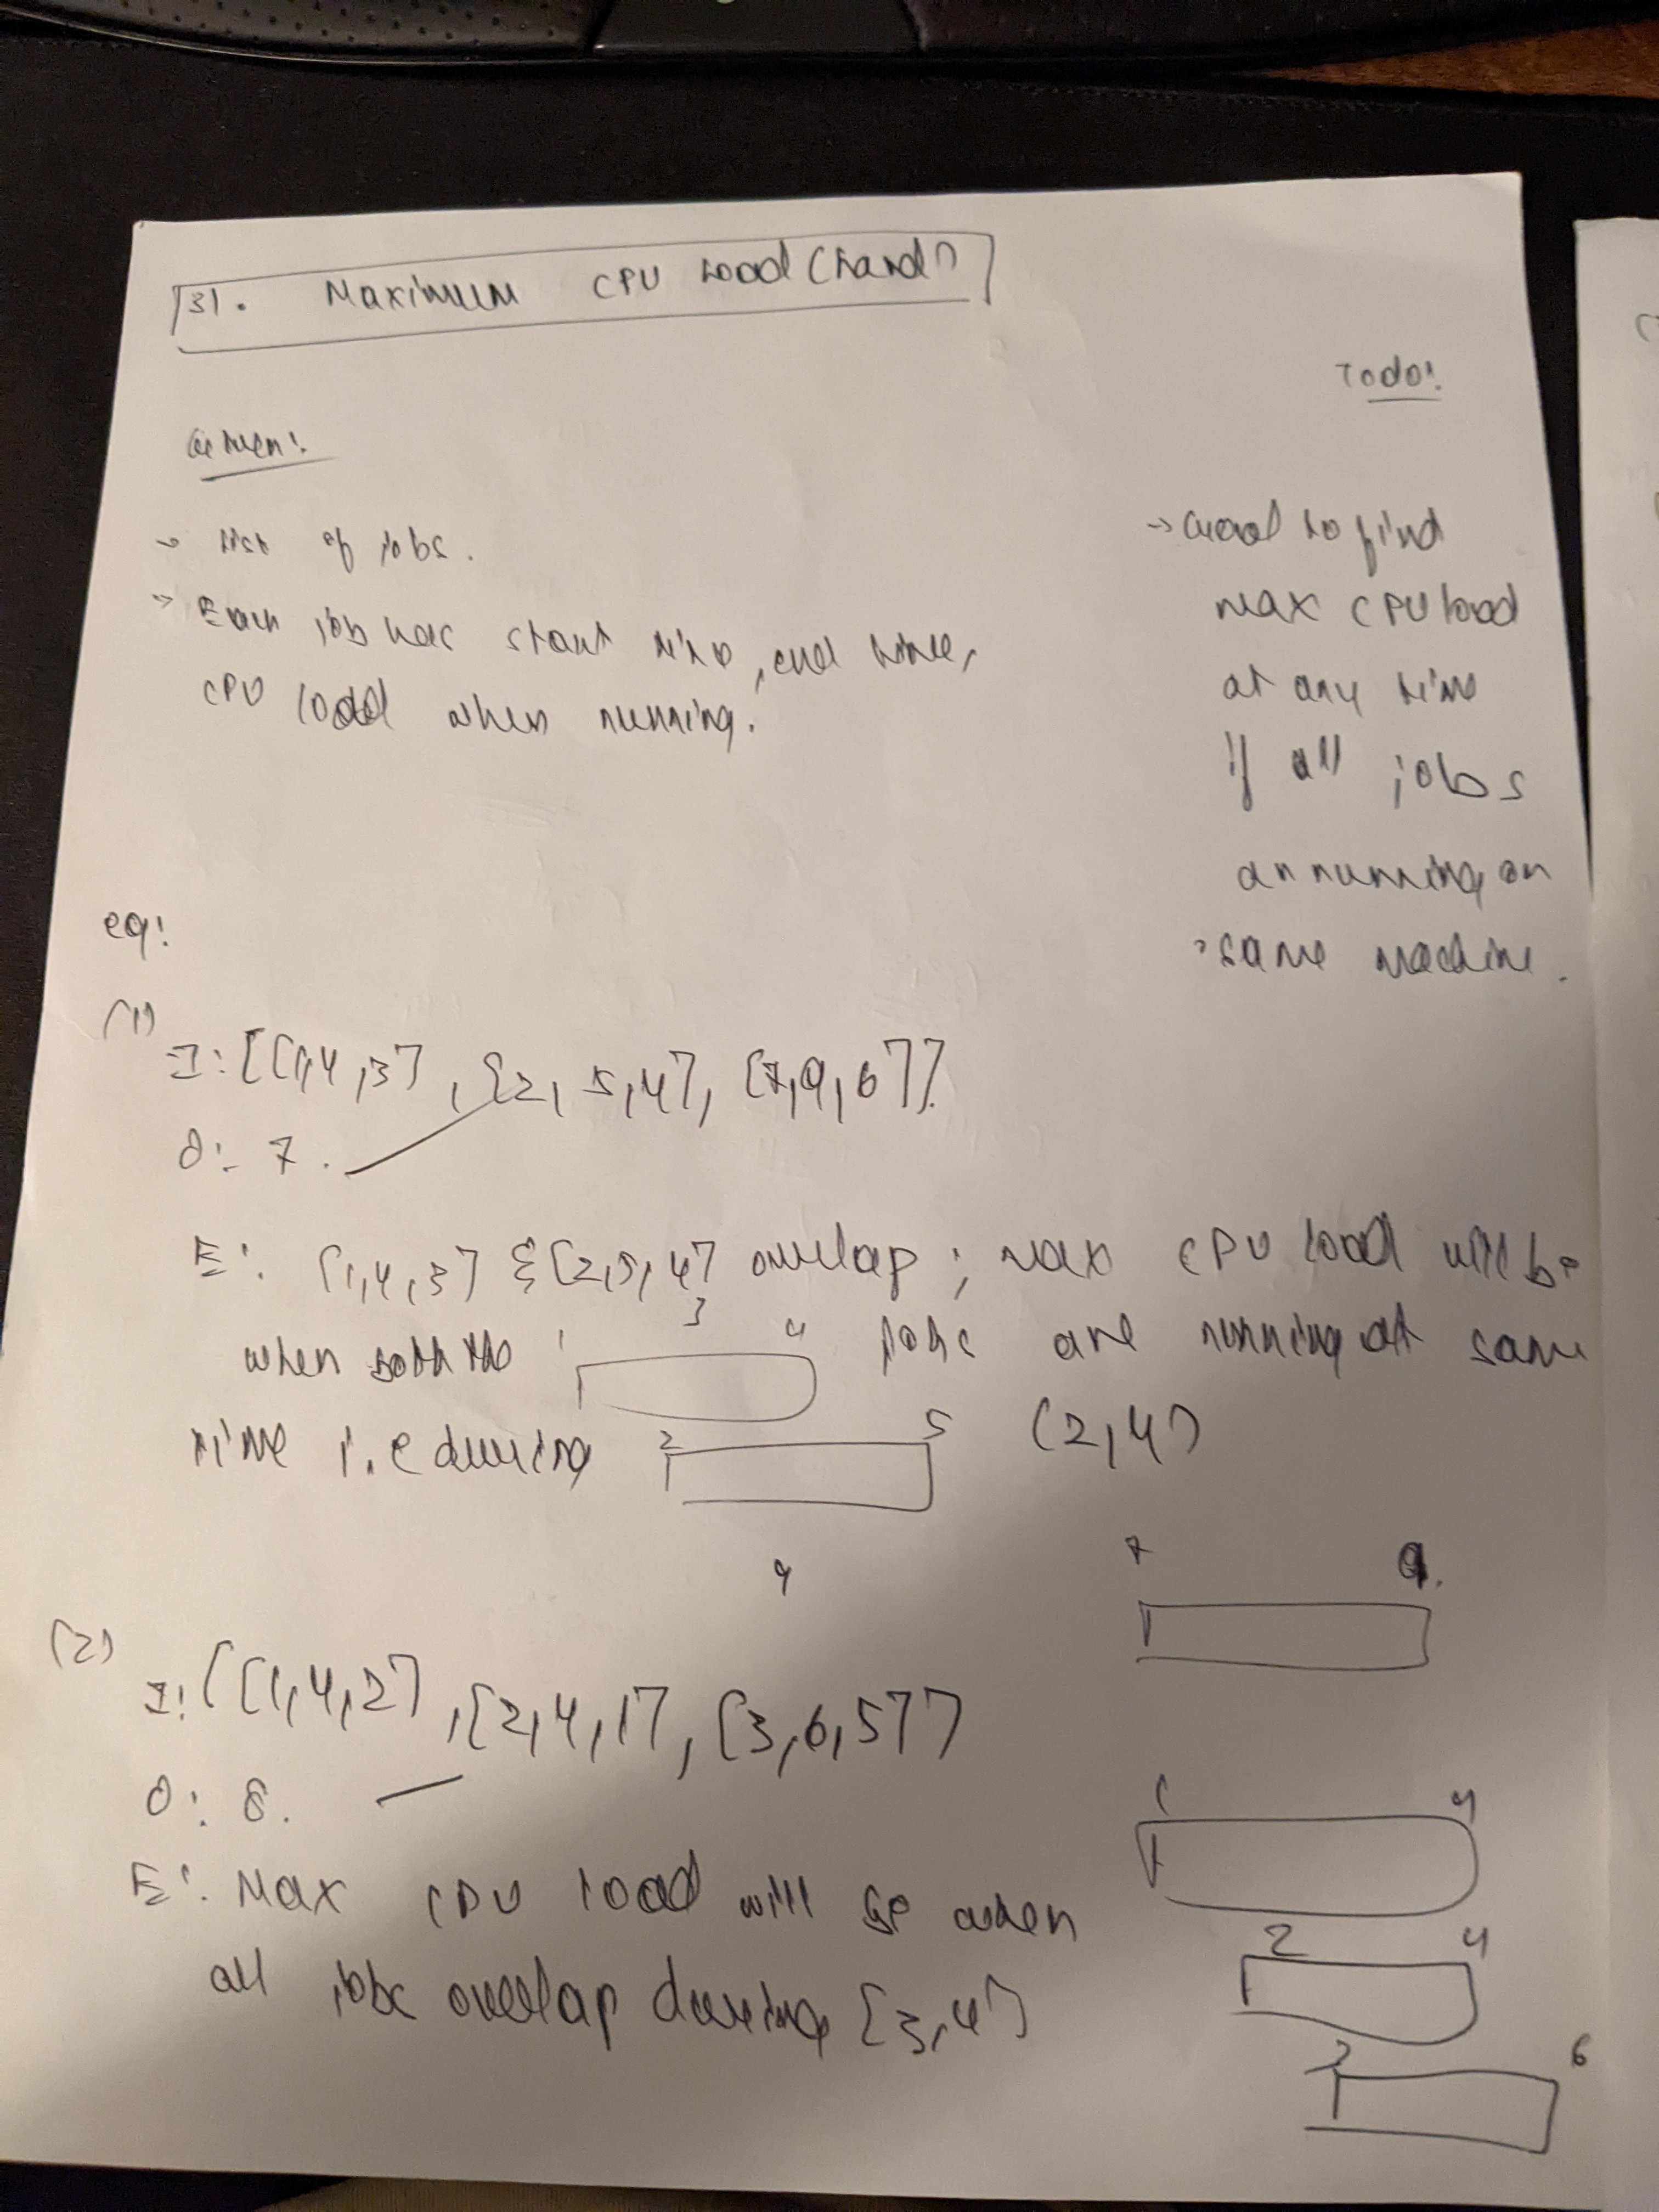 31. Maximum CPU Load (hard)
Todo:
Given:
→ list of jobs.
→ Each job has start time, end time,
CPU load when running.
→ Goal to find
max CPU load
at any time
if all jobs
are running on
same machine.
eg:
(1)
I: [[1,4,3], [2,5,4], [7,9,6]]
O: 7.
E: [1,4,3] & [2,5,4] overlap; max CPU load will be
when both the jobs are running at same
time i.e during (2,4)
3
1 4
2 5
4
7 9.
(2)
I: [[1,4,2], [2,4,1], [3,6,5]]
O: 8.
E: Max CPU load will be when
all jobs overlap during [3,4]
1 4
2 4
3 6